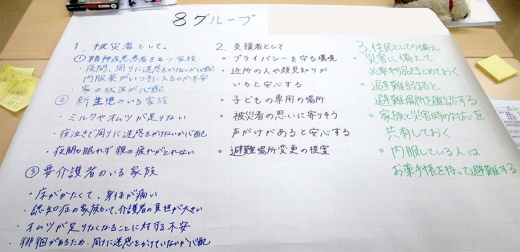 8グループ
1. 被災者として。
① 精神疾患患者をもつ家族
・夜間、周りに迷惑をかけないか心配
内服薬がいつ手に入るのか不安
・家の状況が心配
② 新生児のいる家族
・ミルクやオムツが足りない
・夜泣きで周りに迷惑をかけないか心配
・夜間も眠れず親の疲れがとれない
③ 要介護者のいる家族
・床がかたくて、身体が痛い
・認知症の家族がいて、介護者の負担が大きい
・オムツが足りなくなることに対する不安
・徘徊があるため、周りに迷惑をかけていないか心配
2. 支援者として
・プライバシーを守る環境
・近所の人や顔見知りが
いると安心する
・子どもの専用の場所
・被災者の思いに寄りそう
声がけがあると安心する
・避難場所変更の提案
3. 住民としての備え
・災害に備えて
必要物品をまとめておく
・避難経路と
避難場所を確認する
・家族と災害時の対応を
共有しておく
・内服している人は
お薬手帳を持って避難する